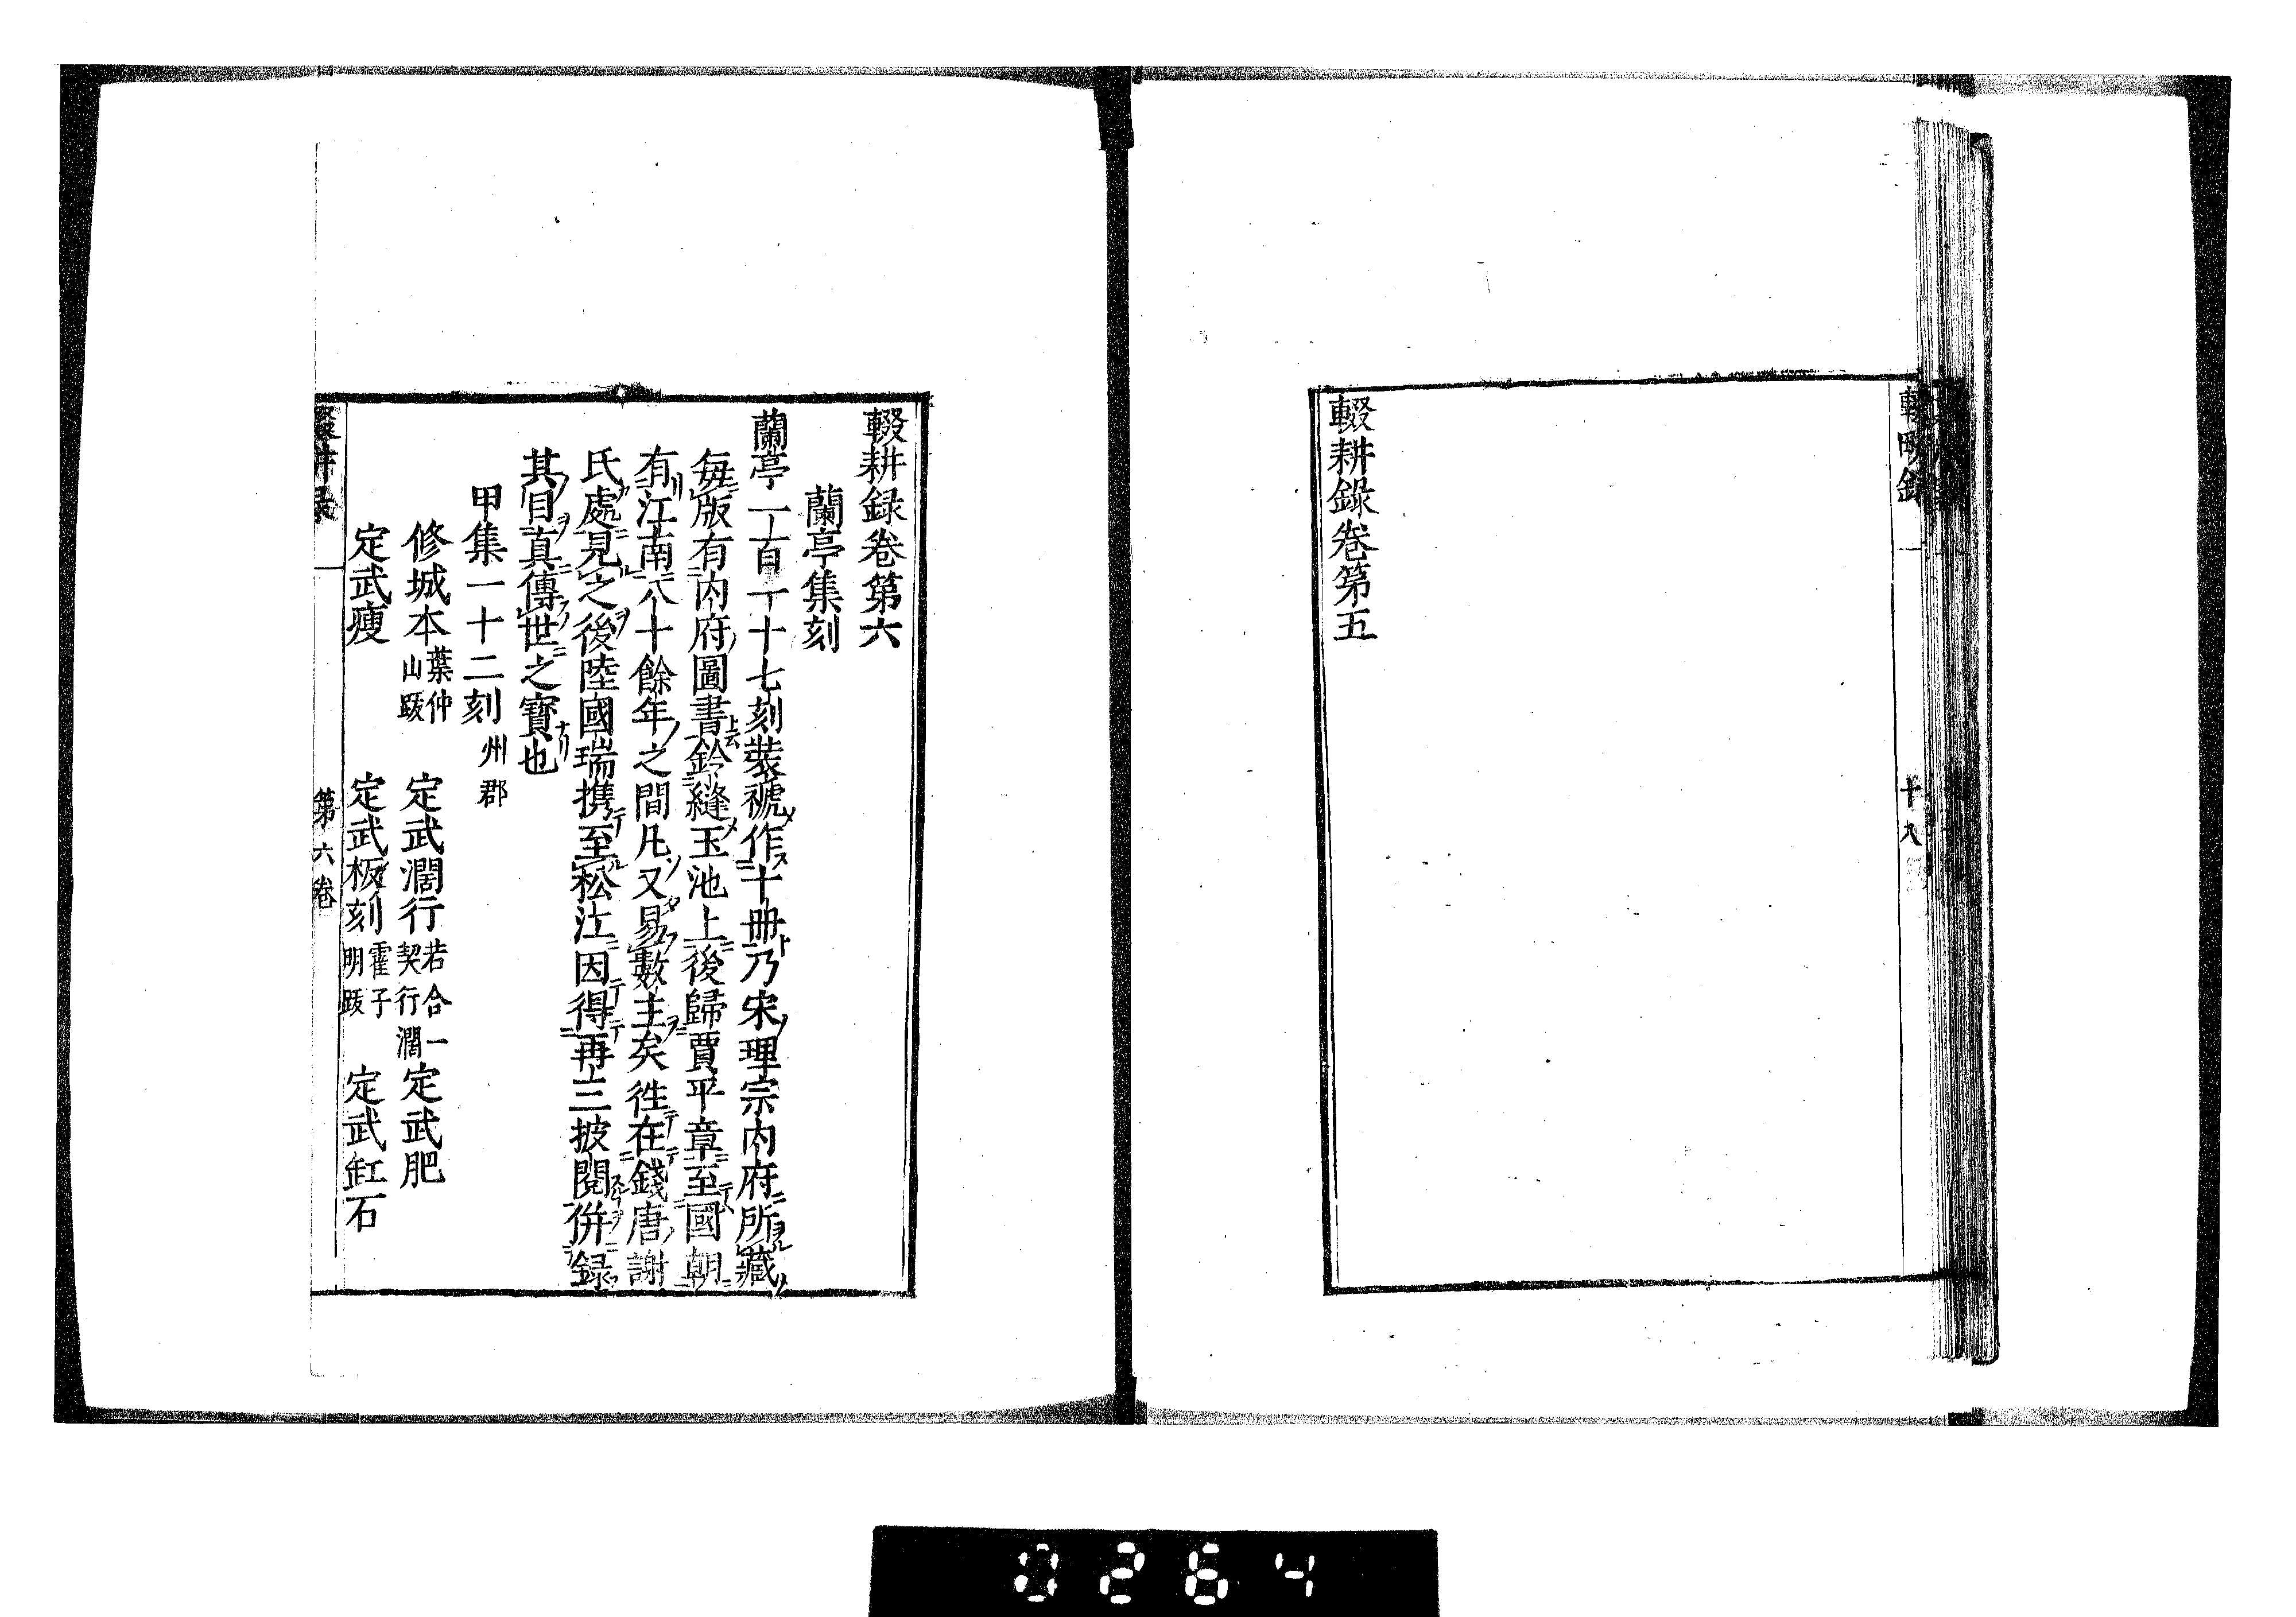 輟耕錄
十八
輟耕錄卷第五
輟耕録卷第六
蘭亭集刻
蘭亭一百一十七刻裝褫作十冊乃宋理宗内府所藏
每版有内府圖書鈐縫玉池上後歸賈平章至國朝
有江南八十餘年之間凡又易數主矣徃在錢唐謝
氏處見之後陸國瑞携至松江因得再三披閱併録
其目真傳世之寶也
甲集一十二刻 州郡
修城本 葉仲山跋 定武濶行 若合一契行濶 定武肥
定武瘦 定武板刻 霍子明跋 定武缸石
輟耕录
第六卷
0264